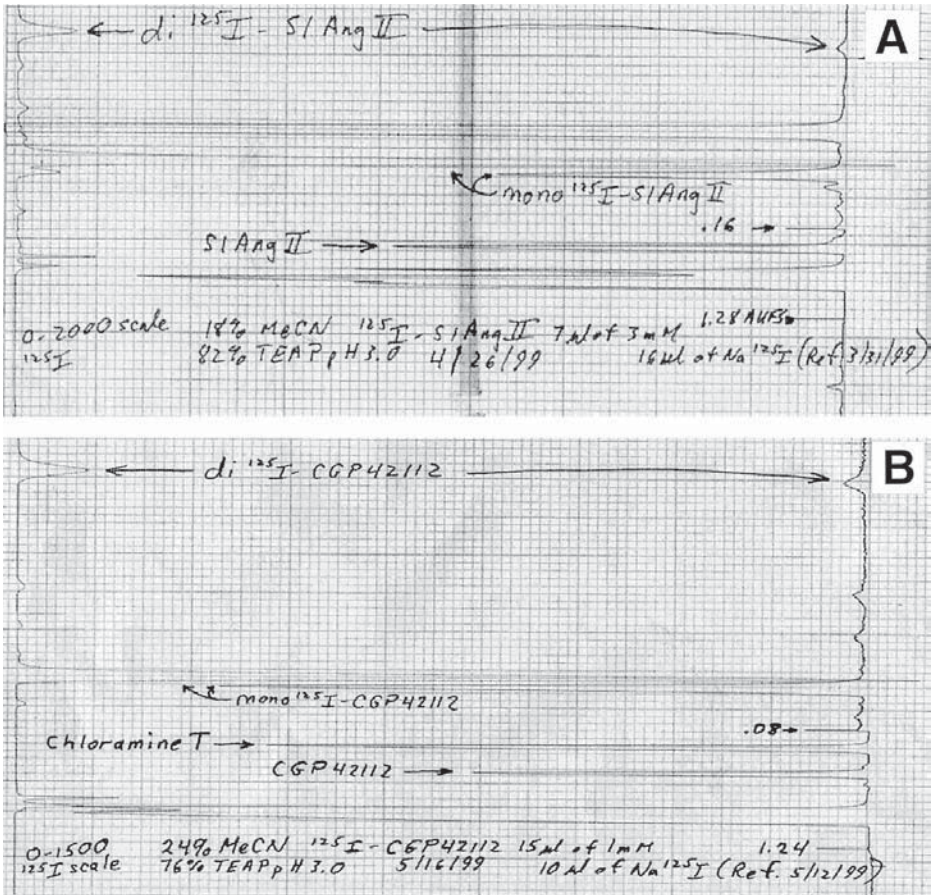 A
di 125I - S1 Ang II
mono 125I-S1 Ang II
.16
S1 Ang II
1.28 AUFS
0-2000 scale 18% MeCN 125I - S1 Ang II 7 µl of 3 mM
125I 82% TEAP pH 3.0 4/26/99 16 µl of Na 125I (Ref. 3/31/99)
B
di 125I-CGP42112
mono 125I-CGP42112
.08
Chloramine T
CGP42112
0-1500 24% MeCN 125I-CGP42112 15 µl of 1mM 1.24
125I scale 76% TEAP pH 3.0 5/16/99 10 µl of Na 125I (Ref. 5/12/99)